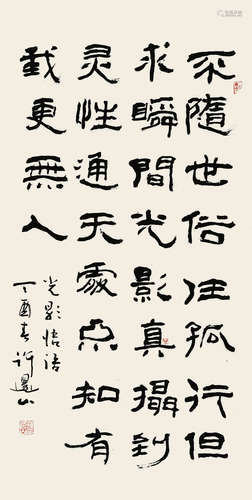 不隨世俗任孤行但
求瞬間光影真攝到
灵性通天處亦知有
我更無人
光影悟语
丁酉春许山